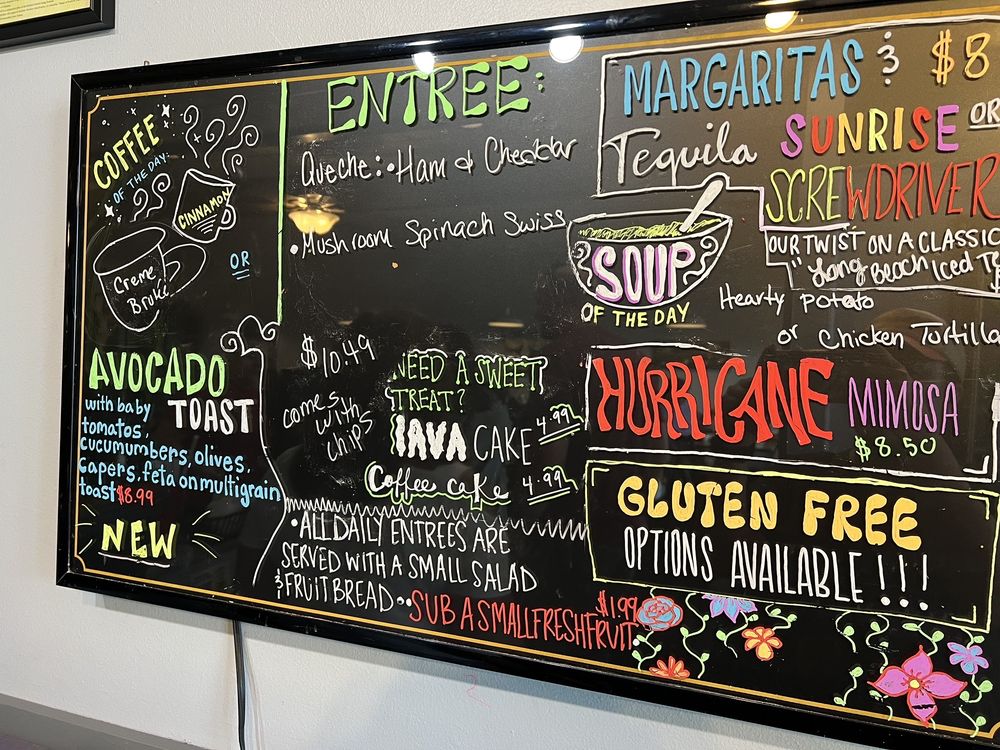 COFFEE
OF THE DAY:
CINNAMON
OR
Creme
Brule
AVOCADO
TOAST
with baby
tomatos,
cucumumbers, olives,
capers, feta on multigrain
toast $8.99
NEW
ENTREE:
Queche: • Ham & Cheddar
• Mushroom Spinach Swiss
$10.49
comes
with
chips
NEED A SWEET
TREAT?
JAVA CAKE 4.99
Coffee cake 4.99
• ALL DAILY ENTREES ARE
SERVED WITH A SMALL SALAD
& FRUIT BREAD • • SUB A SMALL FRESH FRUIT
$1.99
MARGARITAS & $8
Tequila SUNRISE OR
SCREWDRIVER
OUR TWIST ON A CLASSIC
"Long Beach Iced
SOUP
OF THE DAY
Hearty potato
or Chicken Tortilla
HURRICANE MIMOSA
$8.50
GLUTEN FREE
OPTIONS AVAILABLE !!!